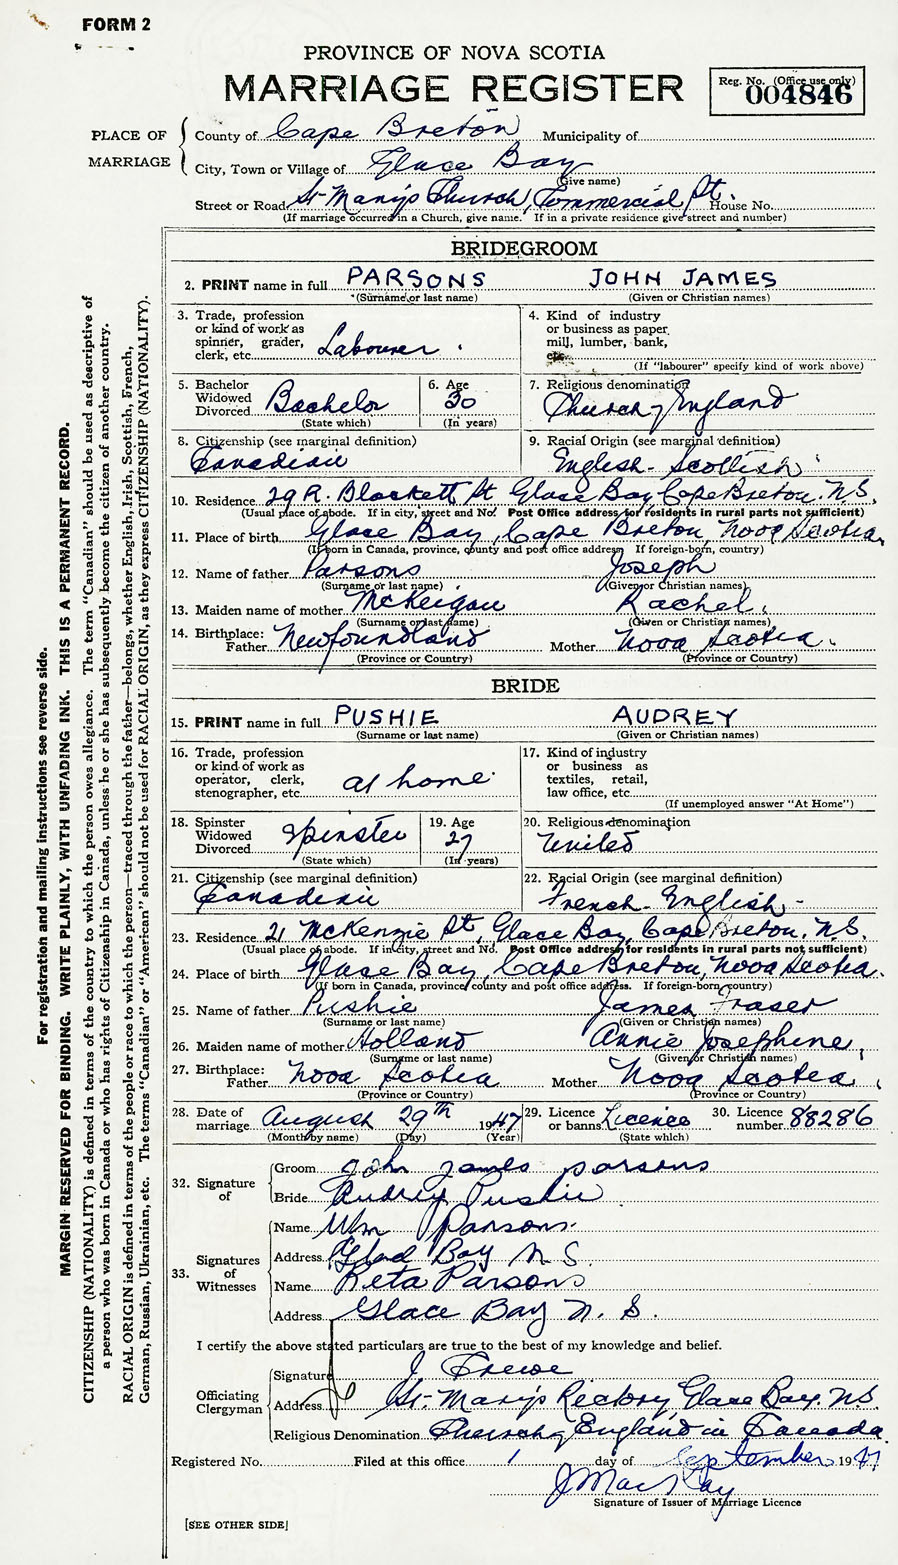 FORM 2
PROVINCE OF NOVA SCOTIA
MARRIAGE REGISTER
Reg. No. (Office use only)
004846
PLACE OF MARRIAGE
County of Cape Breton Municipality of
City, Town or Village of Glace Bay
(Give name)
Street or Road St-Mary's Church, Commercial St. House No.
(If marriage occurred in a Church, give name. If in a private residence give street and number)
BRIDEGROOM
2. PRINT name in full PARSONS JOHN JAMES
(Surname or last name) (Given or Christian names)
3. Trade, profession or kind of work as spinner, grader, clerk, etc. Labourer
4. Kind of industry or business as paper, mill, lumber, bank, etc.
(If "labourer" specify kind of work above)
5. Bachelor Widowed Divorced Bachelor
(State which)
6. Age 30
(In years)
7. Religious denomination
Church of England
8. Citizenship (see marginal definition)
Canadian
9. Racial Origin (see marginal definition)
English-Scottish
10. Residence 29 R. Blackett St Glace Bay Cape Breton. N.S.
(Usual place of abode. If in city, street and No. Post Office address for residents in rural parts not sufficient)
11. Place of birth Glace Bay, Cape Breton, Nova Scotia.
(If born in Canada, province, county and post office address If foreign-born, country)
12. Name of father Parsons Joseph
(Surname or last name) (Given or Christian names)
13. Maiden name of mother McKeigan Rachel.
(Surname or last name) (Given or Christian names)
14. Birthplace: Father Newfoundland Mother Nova Scotia.
(Province or Country) (Province or Country)
BRIDE
15. PRINT name in full PUSHIE AUDREY
(Surname or last name) (Given or Christian names)
16. Trade, profession or kind of work as operator, clerk, stenographer, etc. at home
17. Kind of industry or business as textiles, retail, law office, etc.
(If unemployed answer "At Home")
18. Spinster Widowed Divorced Spinster
(State which)
19. Age 27
(In years)
20. Religious denomination
United
21. Citizenship (see marginal definition)
Canadian
22. Racial Origin (see marginal definition)
French-English-
23. Residence 21 McKenzie St, Glace Bay, Cape Breton. N.S.
(Usual place of abode. If in city, street and No. Post Office address for residents in rural parts not sufficient)
24. Place of birth Glace Bay, Cape Breton, Nova Scotia.
(If born in Canada, province, county and post office address. If foreign-born, country)
25. Name of father Pushie James Fraser
(Surname or last name) (Given or Christian names)
26. Maiden name of mother Holland Annie Josephine,
(Surname or last name) (Given or Christian names)
27. Birthplace: Father Nova Scotia Mother Nova Scotia
(Province or Country) (Province or Country)
28. Date of marriage August 29th 1947
(Month by name) (Day) (Year)
29. Licence or banns Licence
(State which)
30. Licence number 88286
32. Signature of
Groom John James Parsons
Bride Audrey Pushie
33. Signatures of Witnesses
Name Wm Parsons.
Address Glad Bay N S.
Name Reta Parsons
Address Glace Bay N. S.
I certify the above stated particulars are true to the best of my knowledge and belief.
Officiating Clergyman
Signature J Crewe
Address St-Mary's Rectory, Glace Bay. N.S.
Religious Denomination Church of England in Canada.
Registered No. Filed at this office 1 day of September 1947
J MacKay
Signature of Issuer of Marriage Licence
[SEE OTHER SIDE]
For registration and mailing instructions see reverse side.
MARGIN RESERVED FOR BINDING. WRITE PLAINLY, WITH UNFADING INK. THIS IS A PERMANENT RECORD.
CITIZENSHIP (NATIONALITY) is defined in terms of the country to which the person owes allegiance. The term "Canadian" should be used as descriptive of
a person who was born in Canada or who has rights of Citizenship in Canada, unless he or she has subsequently become the citizen of another country.
RACIAL ORIGIN is defined in terms of the people or race to which the person—traced through the father—belongs, whether English, Irish, Scottish, French,
German, Russian, Ukrainian, etc. The terms "Canadian" or "American" should not be used for RACIAL ORIGIN, as they express CITIZENSHIP (NATIONALITY).